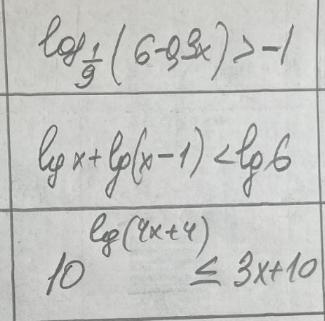 log_{1/9}(6-0,3x)>-1
lg x+lg(x-1)<lg6
10^{lg(4x+4)} ≤ 3x+10